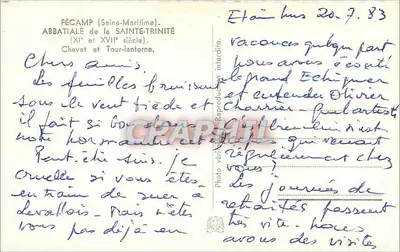 FÉCAMP (Seine-Maritime).
ABBATIALE de la SAINTE-TRINITÉ
(XIe et XVIIe siècle).
Chevet et Tour-lanterne.
Chers amis.
Les feuilles bruissent
sous le vent tiède et
il fait si bon dans
notre normandie
Peut-être suis-je
cruelle si vous êtes
en train de suer à
Levallois - Mais n'êtes
vous pas déjà en
Photo véritable Reproduction interdite.
20.7.83
vacances quelque part
nous avons écouté
le grand Echiquier
et entendu Olivier
Charlier - Quel artiste
est
qui venait
régulièrement chez
vous ?
Les journées de
retraités passent
très vite. nous
avons des visites
CPARAMA